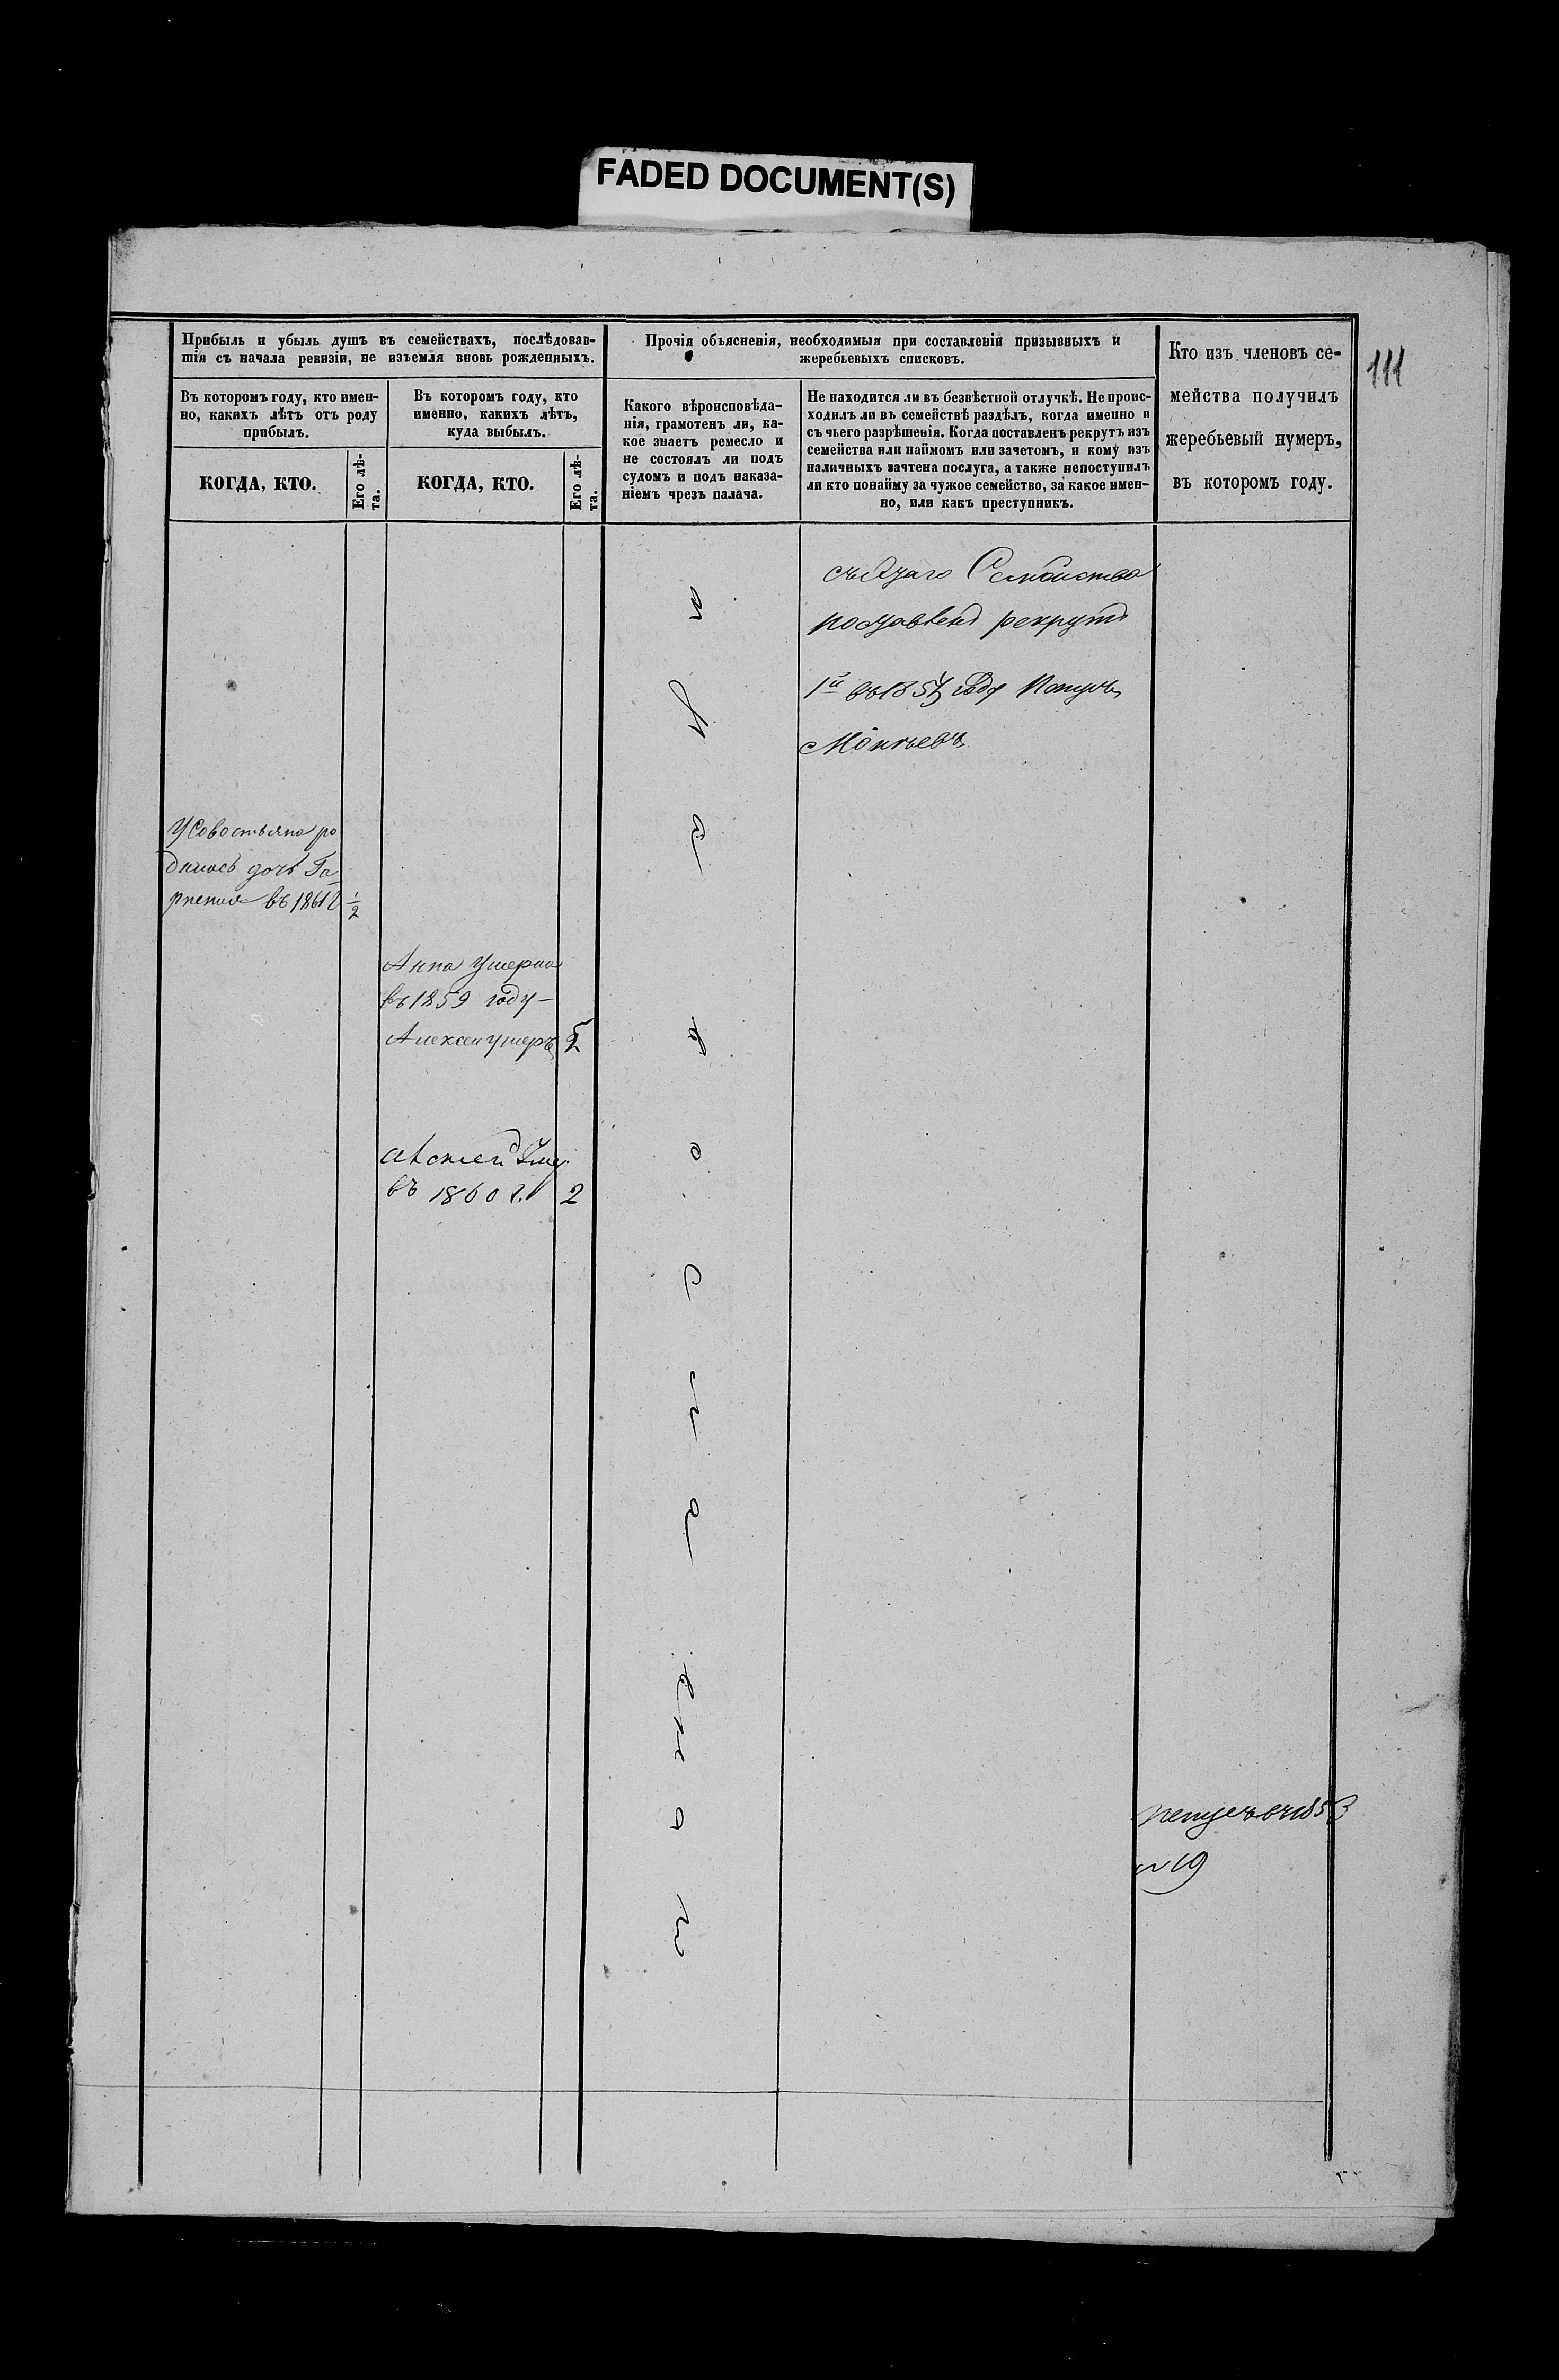 FADED DOCUMENT(S)
111
Прибыль и убыль душъ въ семействахъ, послѣдовав-
шія съ начала ревизіи, не изъемля вновь рожденныхъ.
Въ которомъ году, кто имен-
но, какихъ лѣтъ отъ роду
прибылъ.
КОГДА, КТО.
Его лѣ-
та.
Въ которомъ году, кто
именно, какихъ лѣтъ,
куда выбылъ.
КОГДА, КТО.
Его лѣ-
та.
Прочія объясненія, необходимыя при составленіи призывныхъ и
жеребьевыхъ списковъ.
Какого вѣроисповѣда-
нія, грамотенъ ли, ка-
кое знаетъ ремесло и
не состоялъ ли подъ
судомъ и подъ наказа-
ніемъ чрезъ палача.
Не находится ли въ безвѣстной отлучкѣ. Не проис-
ходилъ ли въ семействѣ раздѣлъ, когда именно и
съ чьего разрѣшенія. Когда поставленъ рекрутъ изъ
семейства или наймомъ или зачетомъ, и кому изъ
наличныхъ зачтена послуга, а также непоступилъ
ли кто понайму за чужое семейство, за какое имен-
но, или какъ преступникъ.
Кто изъ членовъ се-
мейства получилъ
жеребьевый нумеръ,
въ которомъ году.
Семейства
поставленъ рекрутъ
1й въ 1857 году
У Савостьяна ро
дилась дочь
въ 1861 1/2
Анна Умерла
въ 1859 году -
Алексей умеръ 2
Алексей Уме
въ 1860 г. 2
п
р
а
в
о
с
л
а
в
н
а
г
1853
№ 19